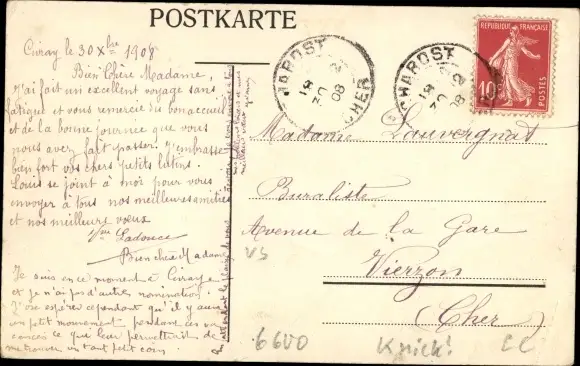 POSTKARTE
Civray le 30 Xbre 1908
Bien Chère Madame,
J'ai fait un excellent voyage sans
fatigue et vous remercie du bon accueil
et de la bonne journée que vous
nous avez fait passer. J'embrasse
bien fort vos chers petits lutins.
Louis se joint à moi pour vous
envoyer à tous nos meilleures amitiés
et nos meilleurs vœux
Bien chère Madame
Je suis en ce moment à Civray
et je n'ai pas d'autres nomination.
J'ose espérer cependant qu'il y aura
un petit mouvement pendant ces va
cances ce qui leur permettrait de
me trouver un tout petit coin.
En attendant le plaisir de vous
CHAROST
CHER
30
08
CHAROST
30
08
RÉPUBLIQUE FRANÇAISE
10
POSTES
Madame Louvergnat
Buraliste
Avenue de la Gare
Vierzon
(Cher)
VS
6600
Knick!
CC